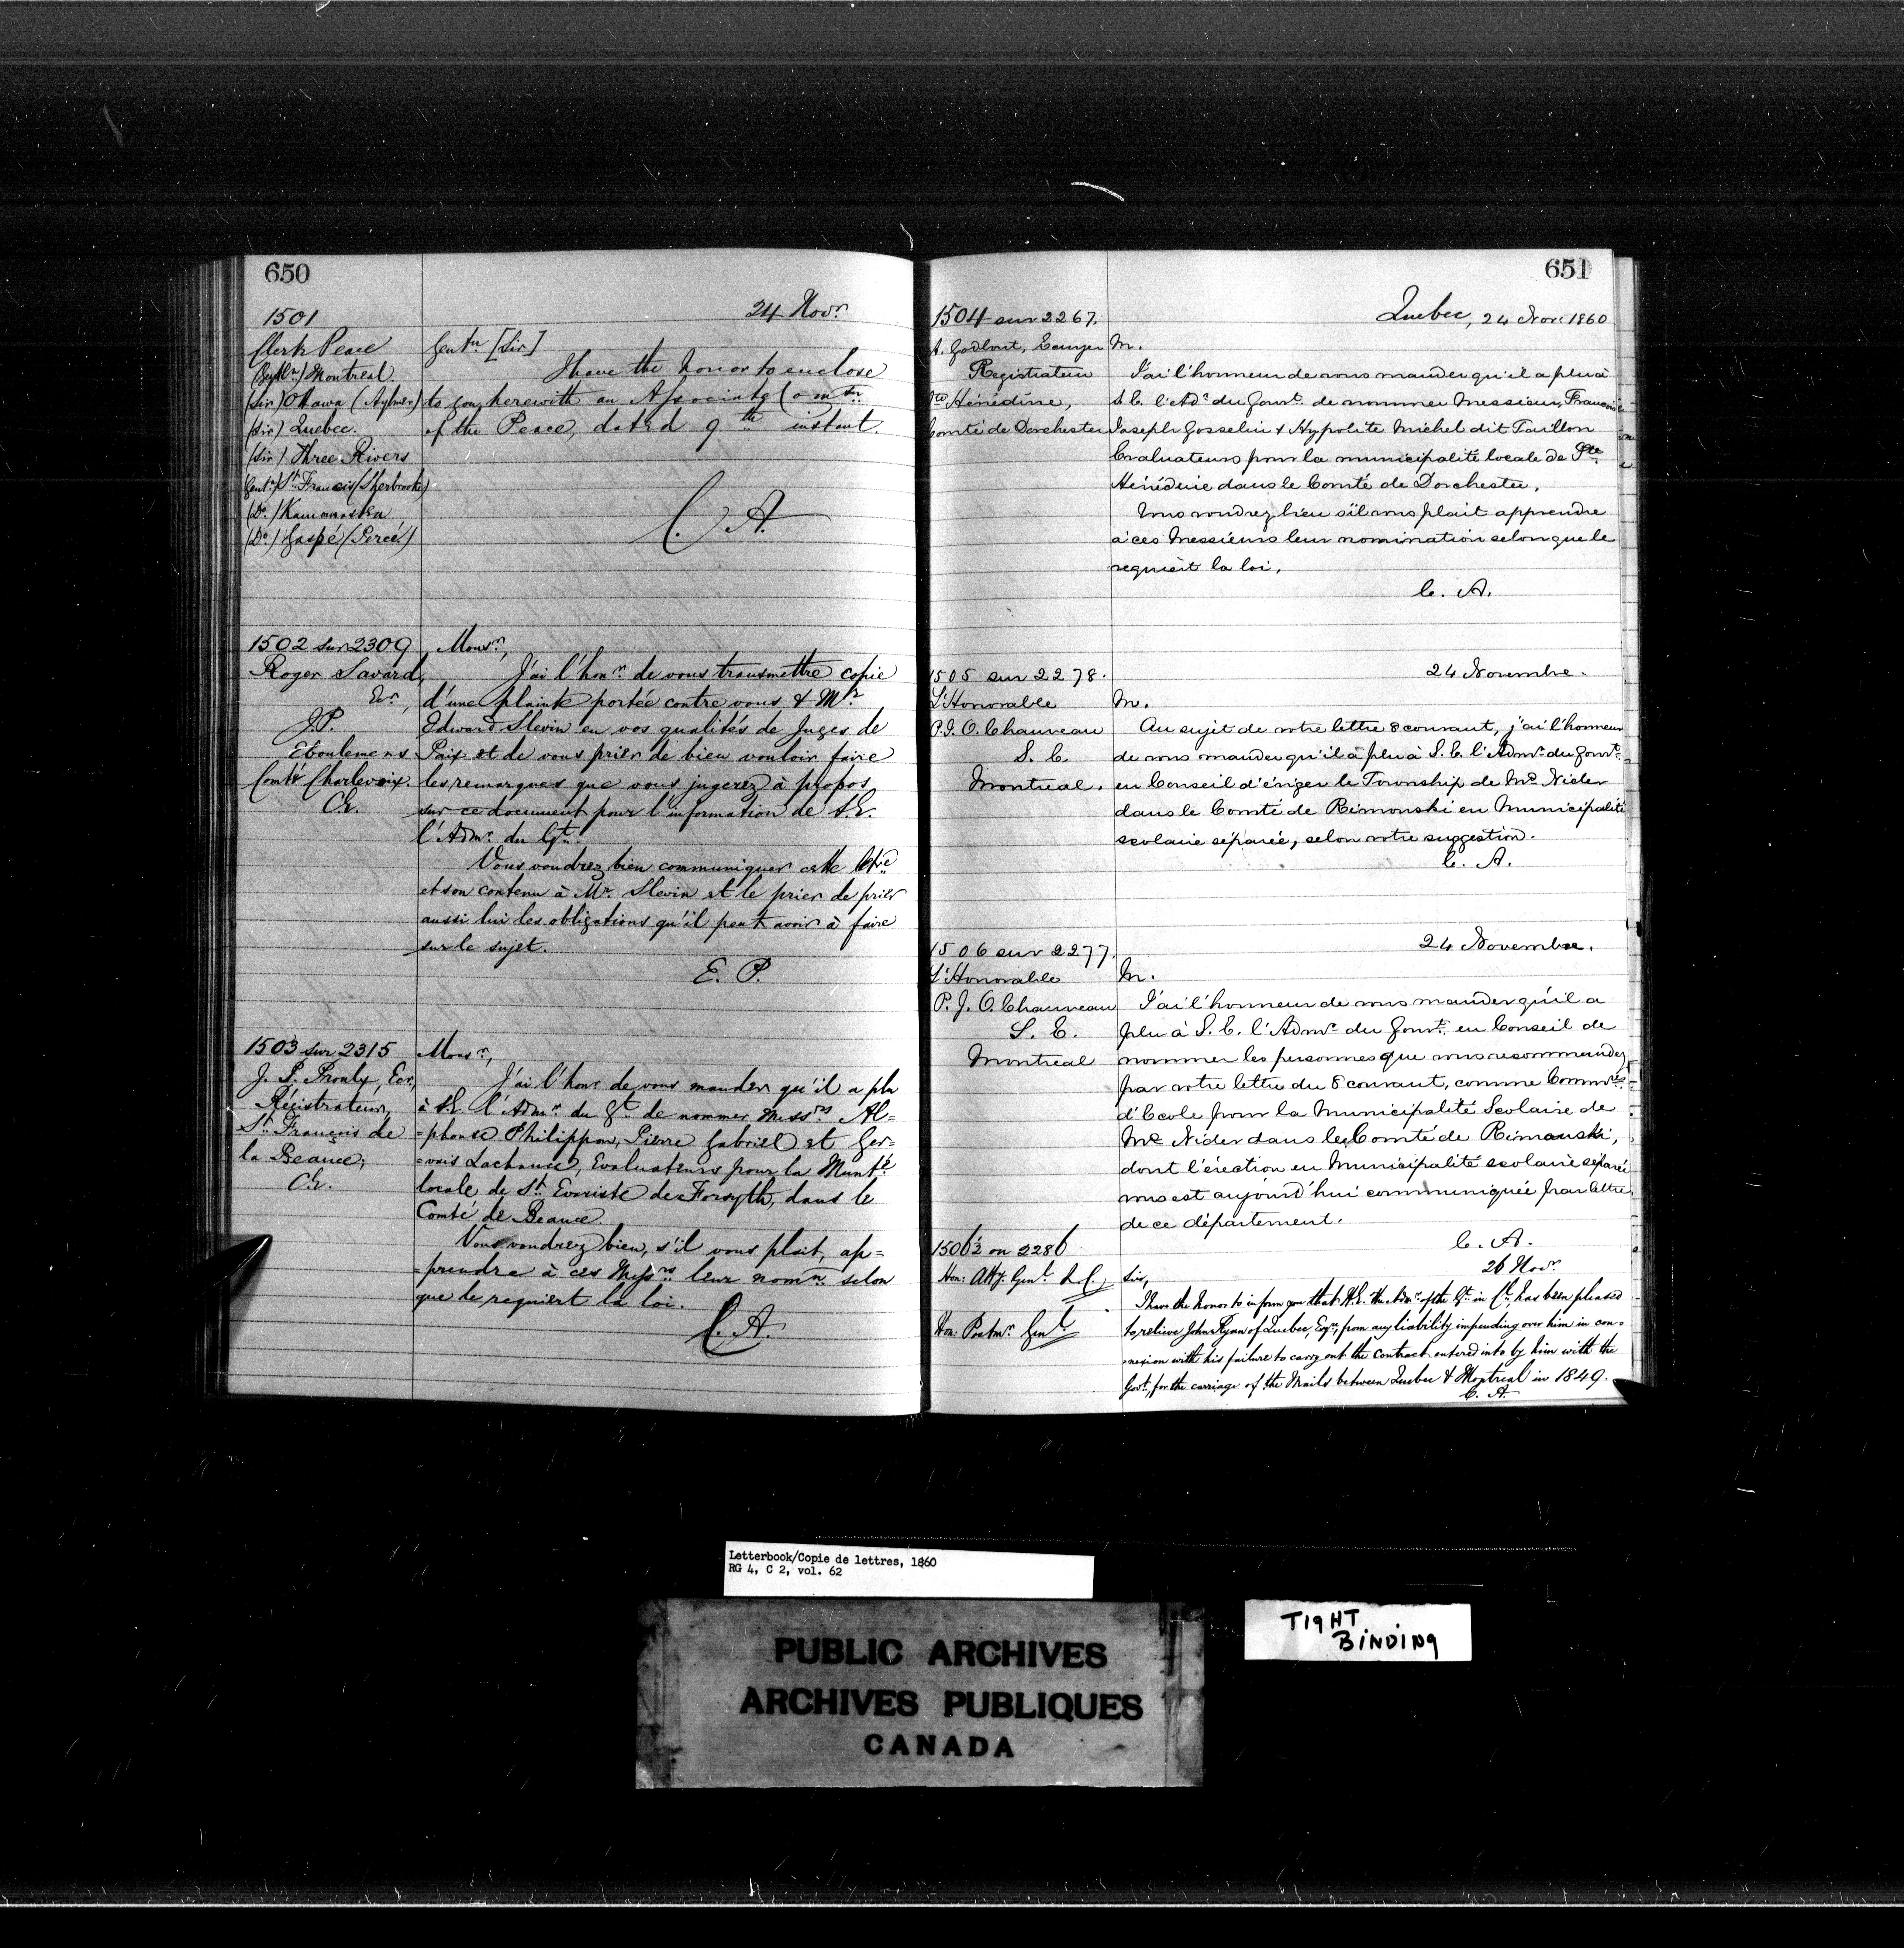 650
24 Novr
1501
Clerk Peace
(Gentln) Montreal
(Sir) Ottawa (Aylmer)
(Sir) Quebec.
(Sir) Three Rivers
Gentn) St Francis (Sherbrooke)
(Do) Kamouraska
(Do) Gaspé (Percé)
Gentn [Sir]
I have the honor to enclose
to you herewith an Associate Comn
of the Peace, dated 9th instant.
C. A.
1502 sur 2309
Roger Savard,
Ecr,
J.P.
Eboulemens
Comté Charlevoix.
C.E.
Monsr,
J'ai l'honr de vous transmettre copie
d'une plainte portée contre vous & Mr
Edward Slevin en vos qualités de Juges de
Paix et de vous prier de bien vouloir faire
les remarques que vous jugerez à propos
sur ce document pour l'information de S.E.
l'Admr du Gt.
Vous voudrez bien communiquer cette lettre
et son contenu à Mr. Slevin et le prier de prier
aussi lui les obligations qu'il peut avoir à faire
sur le sujet.
E. P.
1503 sur 2315
J. P. Proulx, Ecr,
Régistrateur,
St. François de
la Beauce;
C.E.
Monsr,
J'ai l'honr de vous mander qu'il a plu
à S.E. l'Admr du Gt. de nommer Messrs Al=
=phonse Philippon, Pierre Gabriel et Ger=
=vais Lachance, Evaluateurs pour la Munté
locale de St. Evariste de Forsyth, dans le
Comté de Beauce.
Vous voudrez bien, s'il vous plait, ap=
=prendre à ces Messrs leur nomn. selon
que le requiert la loi.
C. A.
651
Quebec, 24 Nov: 1860
1504 sur 2267.
A. Godbout, Ecuyer
Registrateur
Ste Hénédine,
Comté de Dorchester
M.
J'ai l'honneur de vous mander qu'il a plu à
S. E. l'Adr du Gouvt. de nommer Messieurs, François
Joseph Gosselin & Hypolite Michel dit Taillon
Evaluateurs pour la municipalité locale de Ste
Hénédine dans le Comté de Dorchester.
Vous voudrez bien s'il vous plait apprendre
à ces Messieurs leur nomination selon que le
requiert la loi.
C. A.
1505 sur 2278.
L'Honorable
P. J. O. Chauveau
S. E.
Montreal.
24 Novembre.
M.
Au sujet de votre lettre 8 courant, j'ai l'honneur
de vous mander qu'il a plu à S. E. l'Admr. du Gouvt.
en Conseil d'ériger le Township de Mc Nider
dans le Comté de Rimouski en Municipalité
scolaire séparée, selon votre suggestion.
C. A.
1506 sur 2277.
L'Honorable
P. J. O. Chauveau
S. E.
Montreal
24 Novembre.
M.
J'ai l'honneur de vous mander qu'il a
plu à S. E. l'Admr. du Gouvt. en Conseil de
nommer les personnes que vous recommandez
par votre lettre du 8 courant, comme Commres.
d'Ecole pour la Municipalité Scolaire de
Mc Nider dans le Comté de Rimouski,
dont l'érection en Municipalité scolaire séparée
vous est aujourd'hui communiquée par lettre
de ce département.
C. A.
1506½ on 2286
Hon: Atty. Genl. L.C.
Hon. Postmr. Genl.
26 Novr
Sir,
I have the honor to inform you that H.E. the Admr. of the Gt. in Cl., has been pleased
to relieve John Ryan of Quebec, Esqr, from any liability impending over him in con=
=nexion with his failure to carry out the contract entered into by him with the
Govt, for the carriage of the Mails between Quebec & Montreal in 1849.
C. A.
Letterbook/Copie de lettres, 1860
RG 4, C 2, vol. 62
PUBLIC ARCHIVES
ARCHIVES PUBLIQUES
CANADA
TIGHT
BINDING